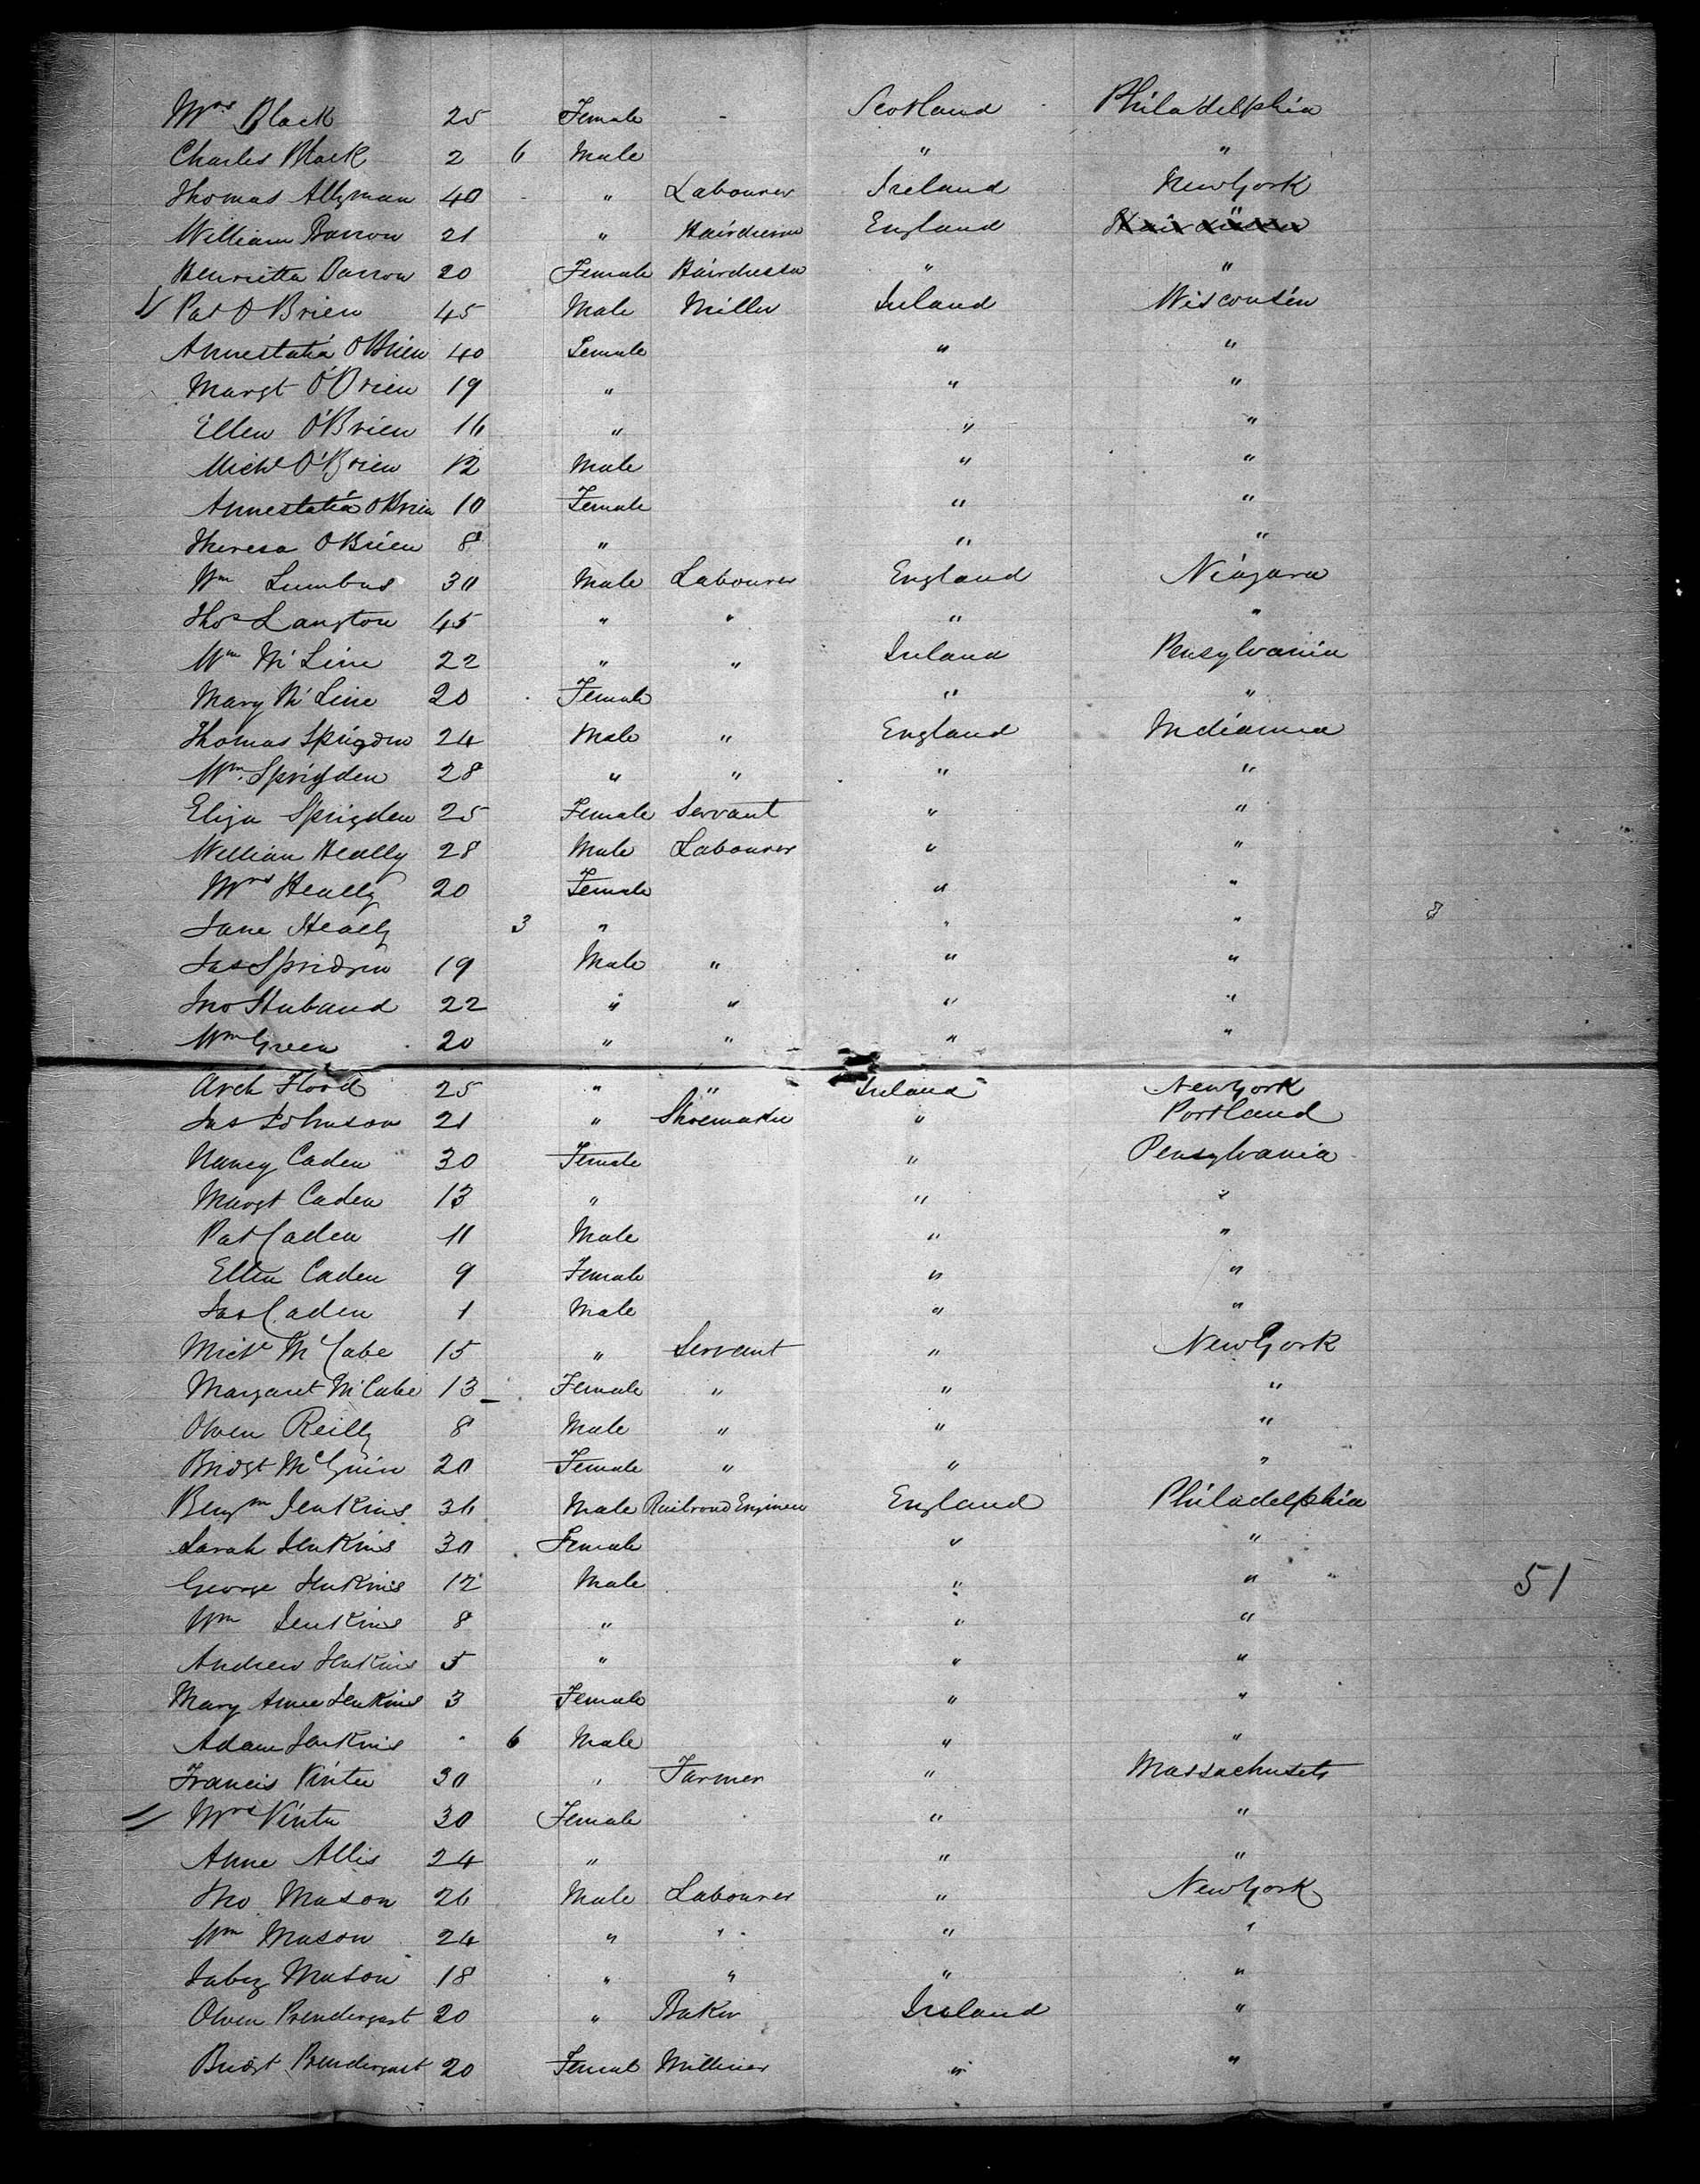 Mrs Black 25 Female - Scotland Philadelphia
Charles Black 2 6 Male " "
Thomas Allyman 40 " Labourer Ireland New York
William Barron 21 " Hairdresser England "
Henrietta Barron 20 Female Hairdresser " "
Pat O'Brien 45 Male Miller Ireland Wisconsin
Annestatia O'Brien 40 Female " "
Margt O'Brien 19 " " "
Ellen O'Brien 16 " " "
Michl O'Brien 12 Male " "
Annestatia O'Brien 10 Female " "
Theresa O'Brien 8 " " "
Wm Lumbus 30 Male Labourer England Niagara
Thos Langton 45 " " " "
Wm McLine 22 " " Ireland Pensylvania
Mary McLine 20 Female " "
Thomas Sprigden 24 Male " England Indianna
Wm Sprigden 28 " " " "
Eliza Sprigden 25 Female Servant " "
William Heally 28 Male Labourer " "
Mrs Heally 20 Female " "
Jane Heally 3 " " "
Jas Spridgen 19 Male " " "
Jno Huband 22 " " " "
Wm Green 20 " " " "
Arch Flood 25 " " Ireland New York
Jas Johnson 21 " Shoemaker " Portland
Nancy Caden 30 Female " Pensylvania
Margt Caden 13 " " "
Pat Caden 11 Male " "
Ellen Caden 9 Female " "
Jas Caden 1 Male " "
Michl McCabe 15 " Servant " New York
Margaret McCabe 13 Female " " "
Owen Reilly 8 Male " " "
Bridgt McGuin 20 Female " " "
Benjm Jenkins 36 Male Railroad Engineer England Philadelphia
Sarah Jenkins 30 Female " "
George Jenkins 12 Male " " 51
Wm Jenkins 8 " " "
Andrew Jenkins 5 " " "
Mary Anne Jenkins 3 Female " "
Adam Jenkins 6 Male " "
Francis Vinter 30 " Farmer " Massachusets
Mrs Vinter 30 Female " "
Anne Allis 24 " " "
Tho. Mason 26 Male Labourer " New York
Wm Mason 24 " " " "
Jabez Mason 18 " " " "
Owen Prendergast 20 " Baker Ireland "
Bridgt Prendergast 20 Female Milliner " "